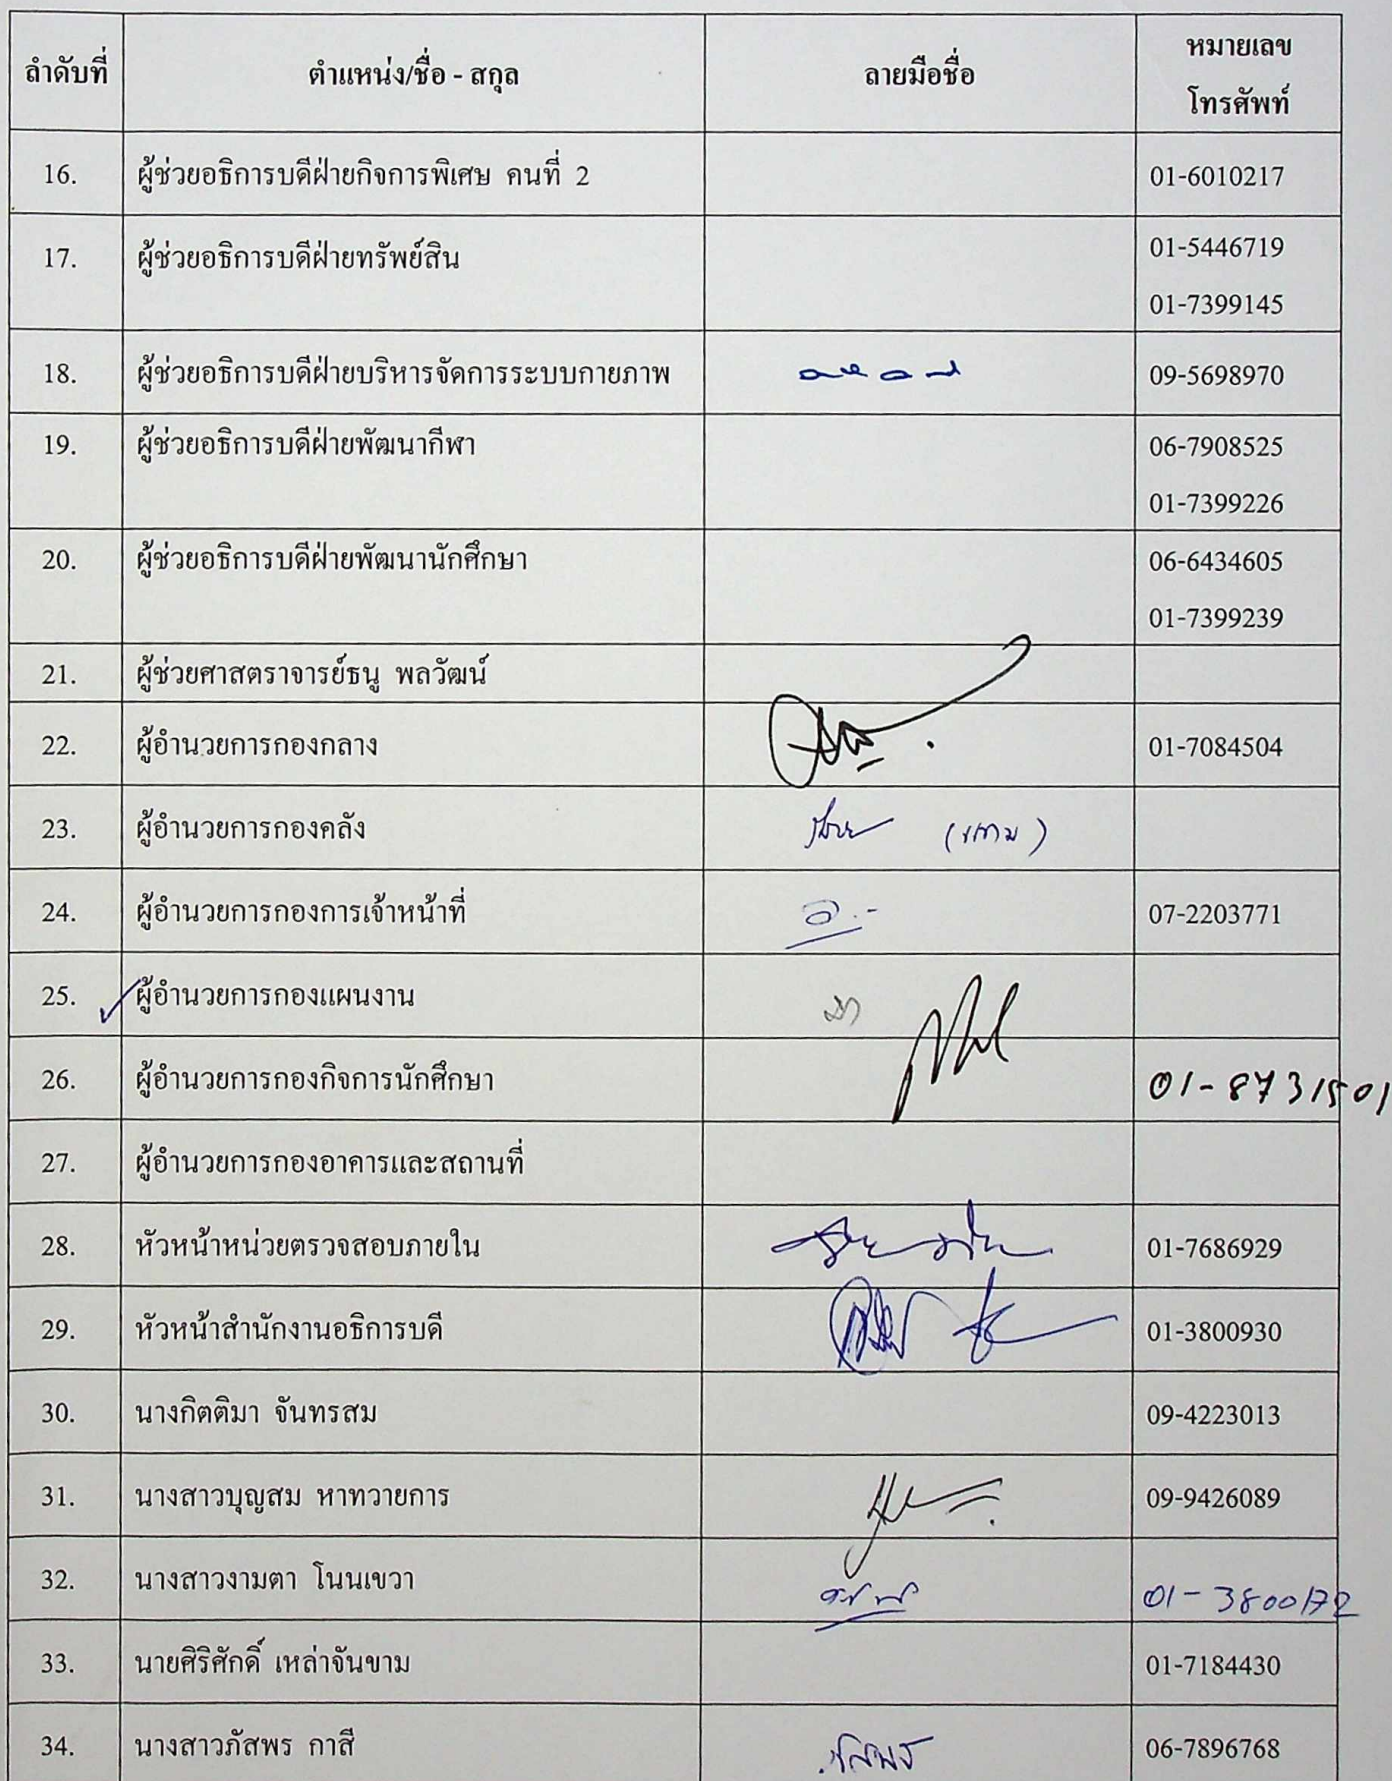 ลำดับที่ ตำแหน่ง/ชื่อ - สกุล ลายมือชื่อ หมายเลข
โทรศัพท์
16. ผู้ช่วยอธิการบดีฝ่ายกิจการพิเศษ คนที่ 2 01-6010217
17. ผู้ช่วยอธิการบดีฝ่ายทรัพย์สิน 01-5446719
01-7399145
18. ผู้ช่วยอธิการบดีฝ่ายบริหารจัดการระบบกายภาพ 09-5698970
19. ผู้ช่วยอธิการบดีฝ่ายพัฒนากีฬา 06-7908525
01-7399226
20. ผู้ช่วยอธิการบดีฝ่ายพัฒนานักศึกษา 06-6434605
01-7399239
21. ผู้ช่วยศาสตราจารย์ธนู พลวัฒน์
22. ผู้อำนวยการกองกลาง 01-7084504
23. ผู้อำนวยการกองคลัง (แทน)
24. ผู้อำนวยการกองการเจ้าหน้าที่ 07-2203771
25. ผู้อำนวยการกองแผนงาน
26. ผู้อำนวยการกองกิจการนักศึกษา 01-8731501
27. ผู้อำนวยการกองอาคารและสถานที่
28. หัวหน้าหน่วยตรวจสอบภายใน 01-7686929
29. หัวหน้าสำนักงานอธิการบดี 01-3800930
30. นางกิตติมา จันทรสม 09-4223013
31. นางสาวบุญสม หาทวายการ 09-9426089
32. นางสาวงามตา โนนเขวา 01-3800172
33. นายศิริศักดิ์ เหล่าจันขาม 01-7184430
34. นางสาวภัสพร กาสี 06-7896768